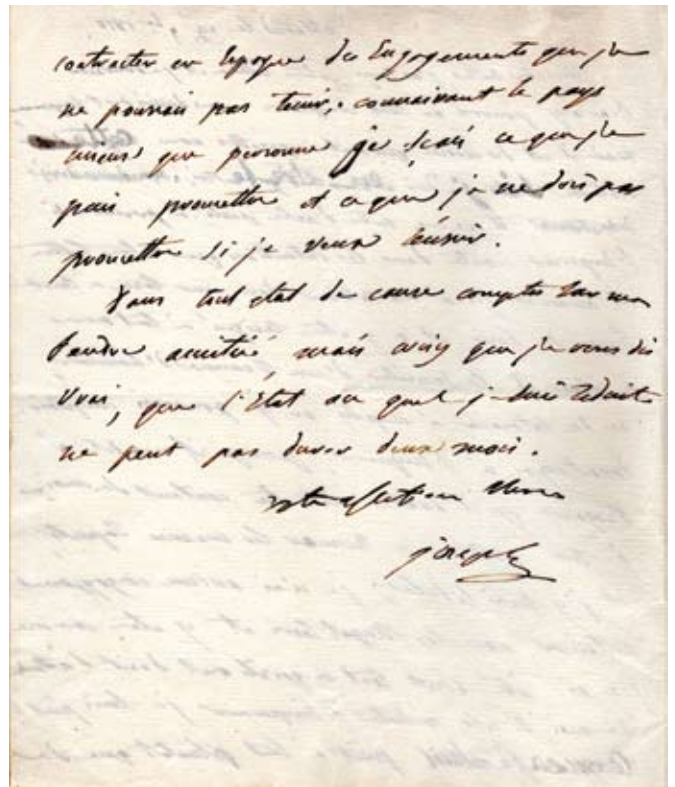 contracter en Espagne des Engagements que je
ne pourrai pas tenir, connaissant le pays
mieux que personne je scais ce que je
puis promettre et ce que je ne dois pas
promettre si je veux réussir.
Dans tout état de cause comptez sur mon
tendre amitié, mais croiez que je vous dis
vrai, que l'État au quel je suis réduit
ne peut pas durer deux mois.
votre affectionné frere
joseph